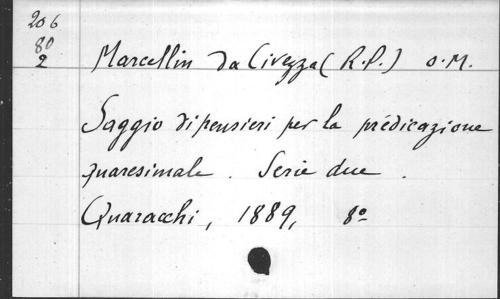 206
80
2
Marcellin da Civezza (R.P.) O.M.
Saggio di pensieri per la prédicazione
quaresimale. Serie due.
Quaracchi, 1889, 8º